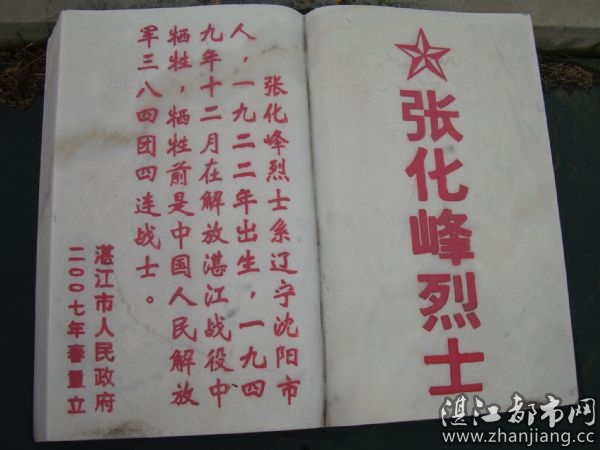 张化峰烈士
张化峰烈士系辽宁沈阳市
人，一九二二年出生，一九四
九年十二月在解放湛江战役中
牺牲，牺牲前是中国人民解放
军三八四团四连战士。
湛江市人民政府
二〇〇七年春重立
湛江都市网
www.zhanjiang.cc